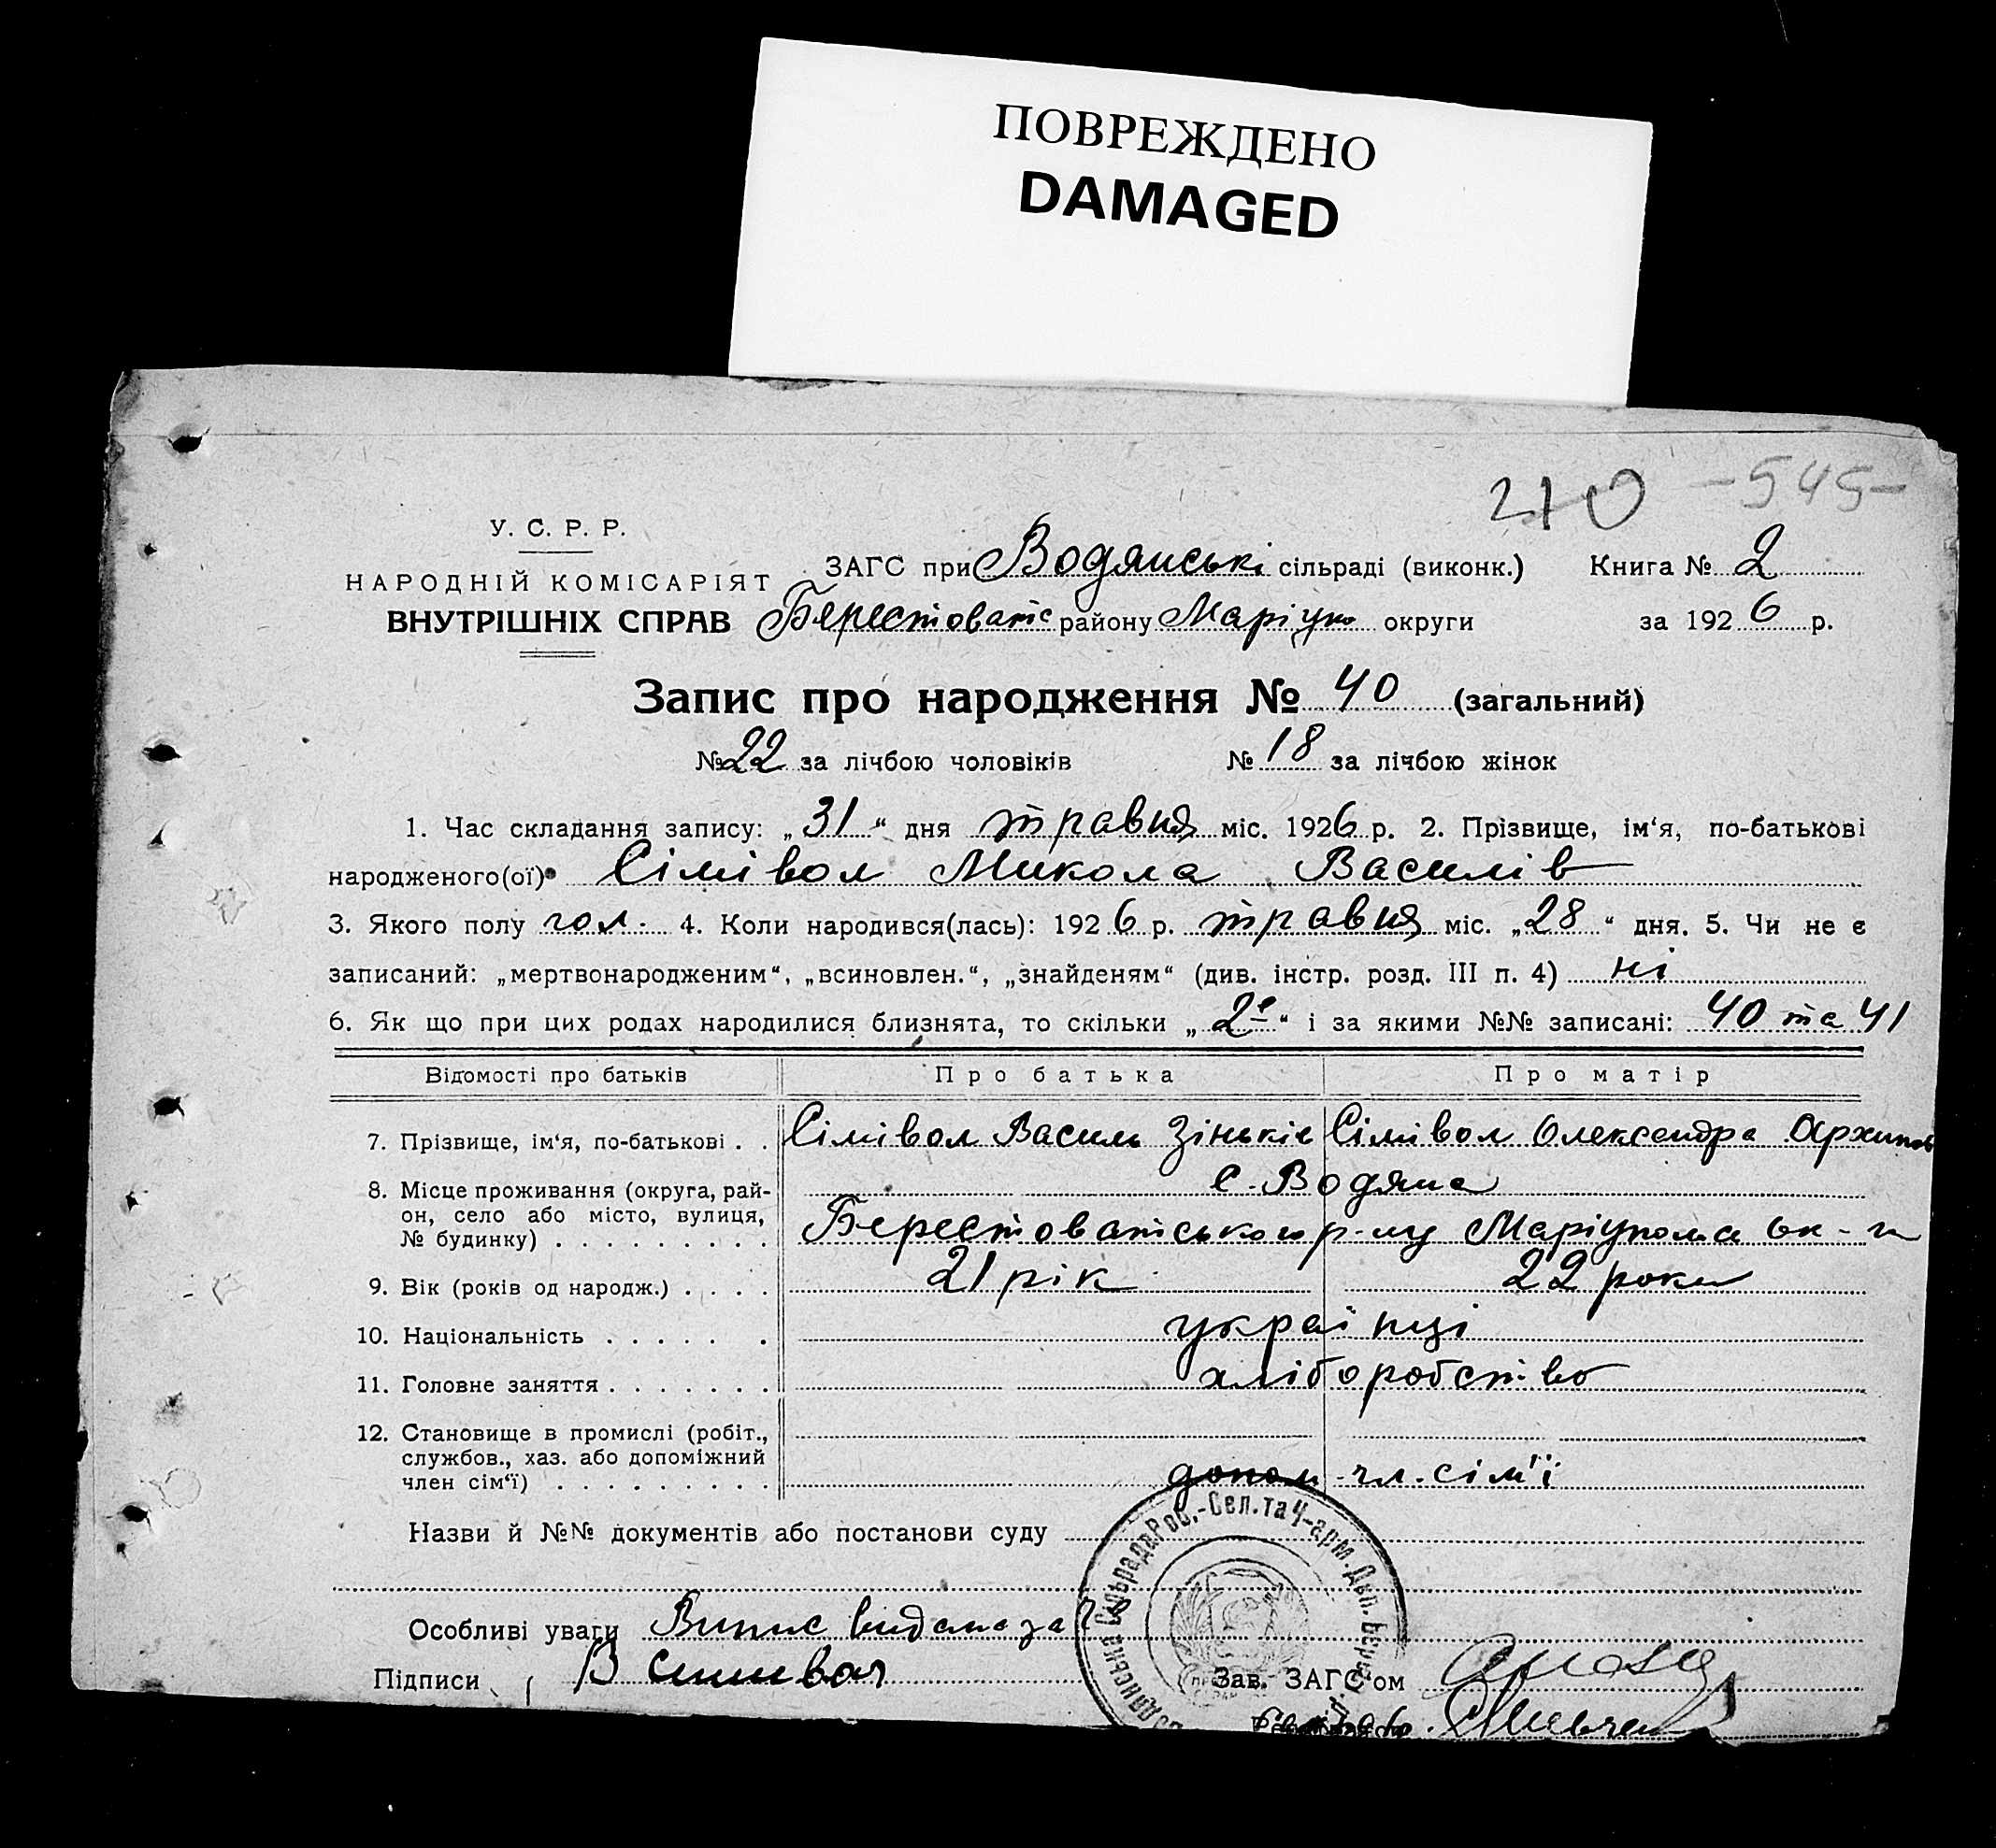 ПОВРЕЖДЕНО
DAMAGED
210 -545-
У. С. Р. Р.
НАРОДНІЙ КОМІСАРІЯТ
ВНУТРІШНІХ СПРАВ
ЗАГС при Водянські сільраді (виконк.) Книга № 2
Берестоватс району Маріуп округи за 1926 р.
Запис про народження № 40 (загальний)
№ 22 за лічбою чоловіків № 18 за лічбою жінок
1. Час складання запису: „31“ дня травня міс. 1926 р. 2. Прізвище, ім'я, по-батькові
народженого(ої) Сімівол Микола Василів
3. Якого полу чол. 4. Коли народився(лась): 1926 р. травня міс. „28“ дня. 5. Чи не є
записаний: „мертвонародженим“, „всиновлен.“, „знайденям“ (див. інстр. розд. III п. 4) ні
6. Як що при цих родах народилися близнята, то скільки „2е“ і за якими №№ записані: 40 та 41
Відомості про батьків Про батька Про матір
7. Прізвище, ім'я, по-батькові . . Сімівол Василь Зіньків Сімівол Олександра Архипов
8. Місце проживання (округа, рай-
он, село або місто, вулиця,
№ будинку) . . . . . . . . .
с. Водяна
Берестоватського р-ну Маріупол ок-и
9. Вік (років од народж.) . . . . 21 рік 22 роки
10. Національність . . . . . . українці
11. Головне заняття . . . . . . . хліборобство
12. Становище в промислі (робіт.,
службов., хаз. або допоміжний
член сім'ї) . . . . . . . . .
допом. чл. сім'ї
Назви й №№ документів або постанови суду
Особливі уваги Випис видана за
Підписи В Симивол Зав. ЗАГС'ом
Водянська СільрадаРоб.-Сел.таЧ-арм.Деп.